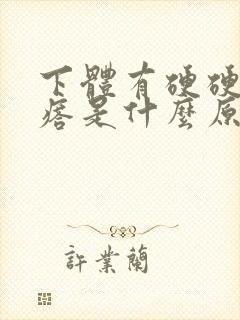 下體有硬硬
痞是什麼原
許業蘭